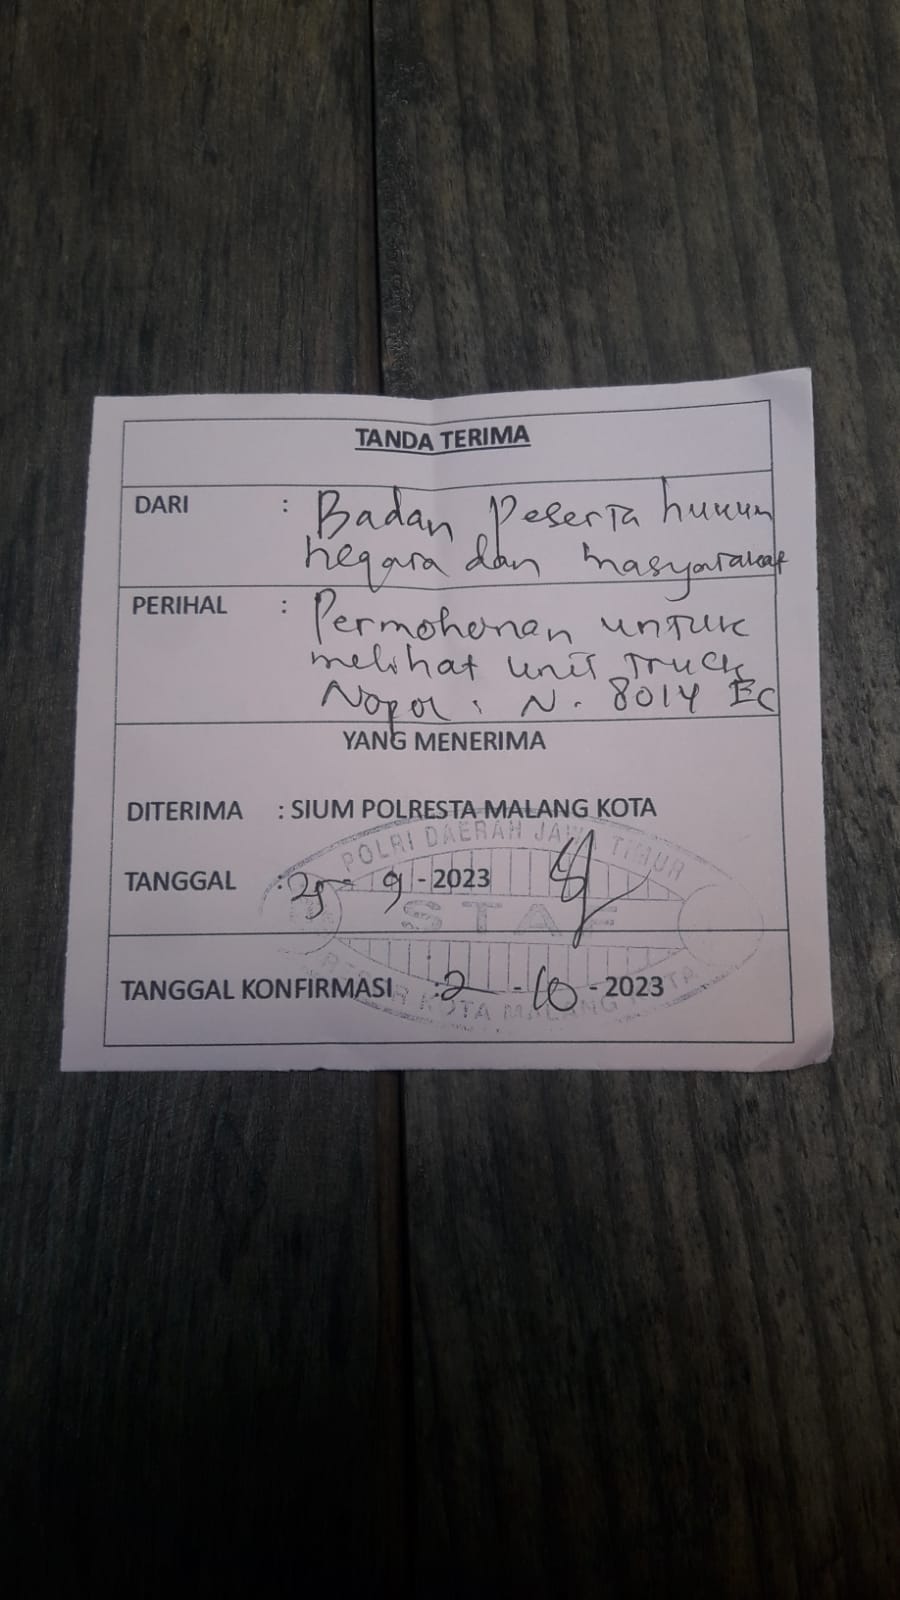 TANDA TERIMA
DARI : Badan Peserta hukum
negara dan masyarakat
PERIHAL : Permohonan untuk
melihat unit Truck
Nopol : N. 8014 EC
YANG MENERIMA
DITERIMA : SIUM POLRESTA MALANG KOTA
POLRI DAERAH JAWA TIMUR
TANGGAL : 25 - 9 - 2023
STAF
TANGGAL KONFIRMASI : 2 - 10 - 2023
RESOR KOTA MALANG KOTA